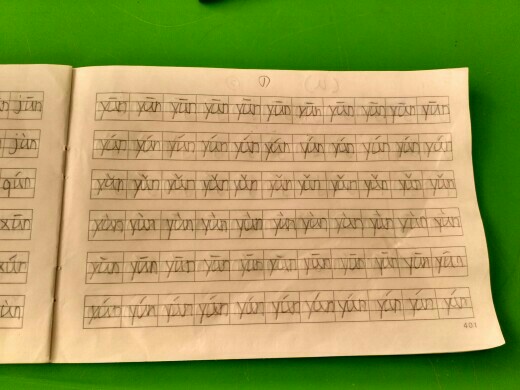 ①
jūn yūn yūn yūn yūn yūn yūn yūn yūn yūn yūn yūn
jùn yún yún yún yún yún yún yún yún yún yún yún
qún yǔn yǔn yǔn yǔn yǔn yǔn yǔn yǔn yǔn yǔn yǔn
xūn yùn yùn yùn yùn yùn yùn yùn yùn yùn yùn yùn
xún yūn yūn yūn yūn yūn yūn yūn yūn yūn yūn yūn
yún yún yún yún yún yún yún yún yún yún yún
401